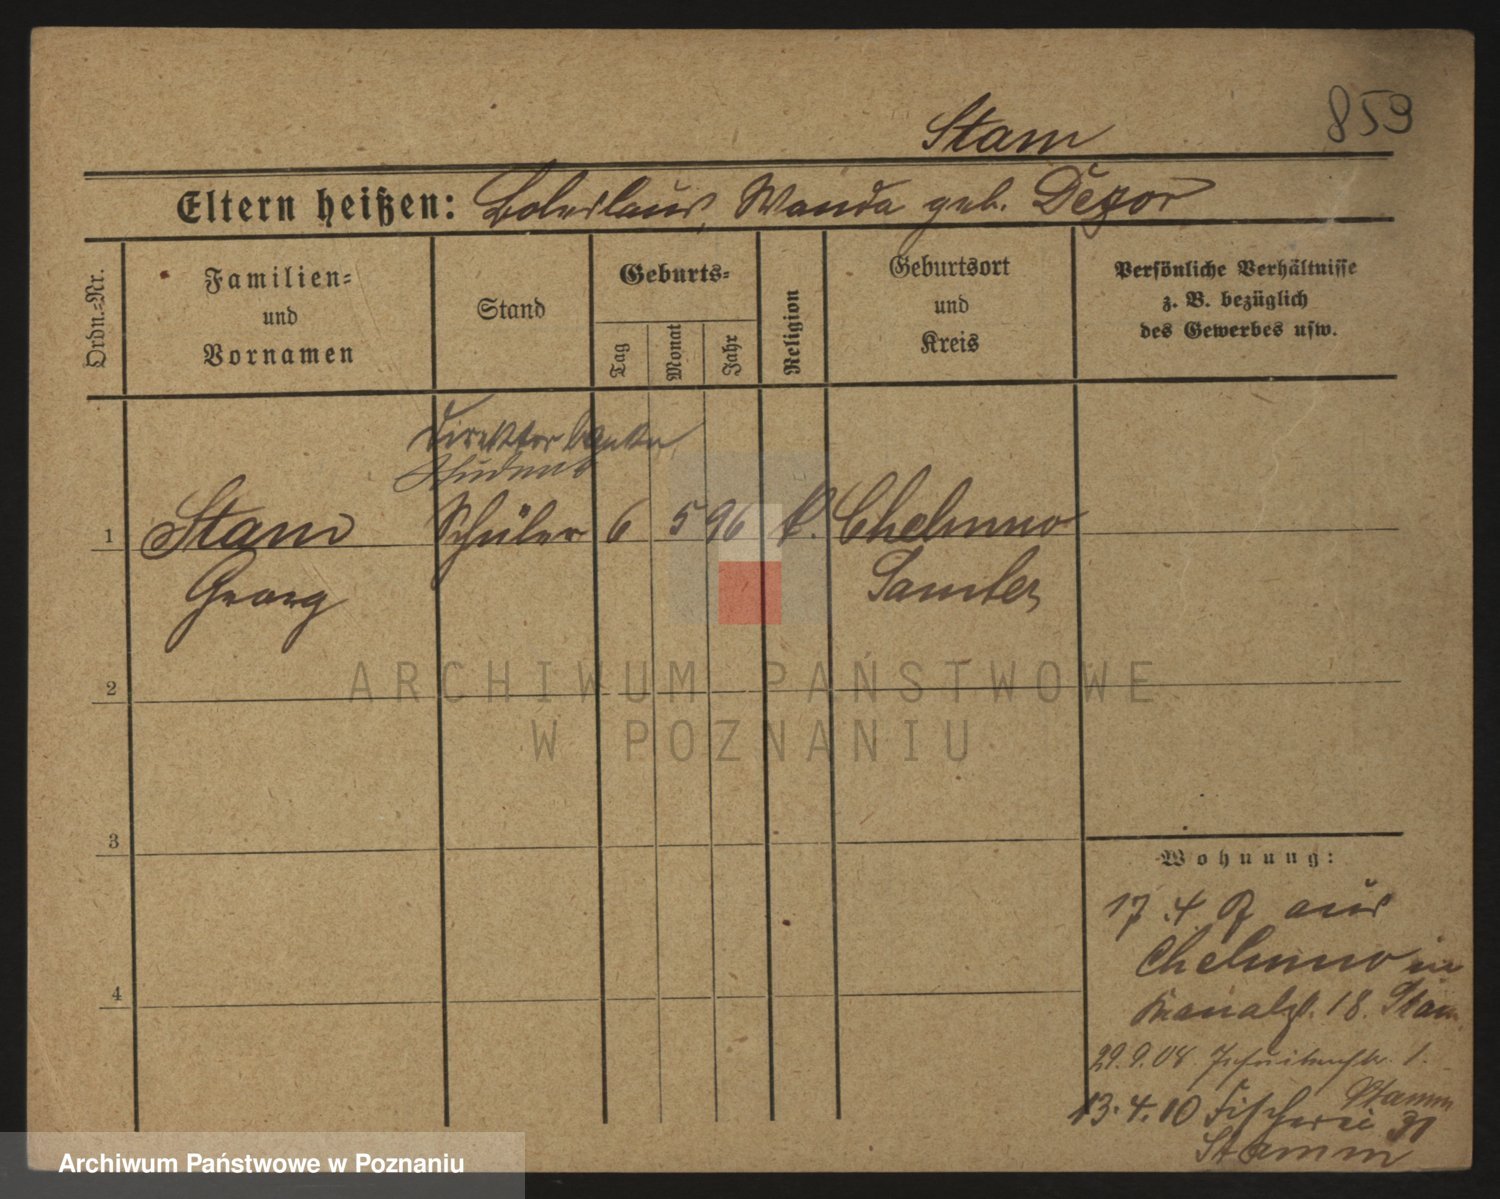 859
Stam
Eltern heißen: Boleslaus, Wanda geb. Dezor
Ordn.-Nr.
Familien- und Vornamen
Stand
Geburts-
Tag
Monat
Jahr
Religion
Geburtsort und Kreis
Persönliche Verhältnisse
z. B. bezüglich
des Gewerbes usw.
Direktor banku
Student
1 Stam Schüler 6 5 96 k. Chelmno
Georg Samter
2
3
4
Wohnung:
17.4 aus
Chelmno in
Kanalst. 18. Stam
29.9.08. Jesuitenstr. 1.
Stamm
13.4.10 Fischerei 31
Stamm
ARCHIWUM PAŃSTWOWE
W POZNANIU
Archiwum Państwowe w Poznaniu